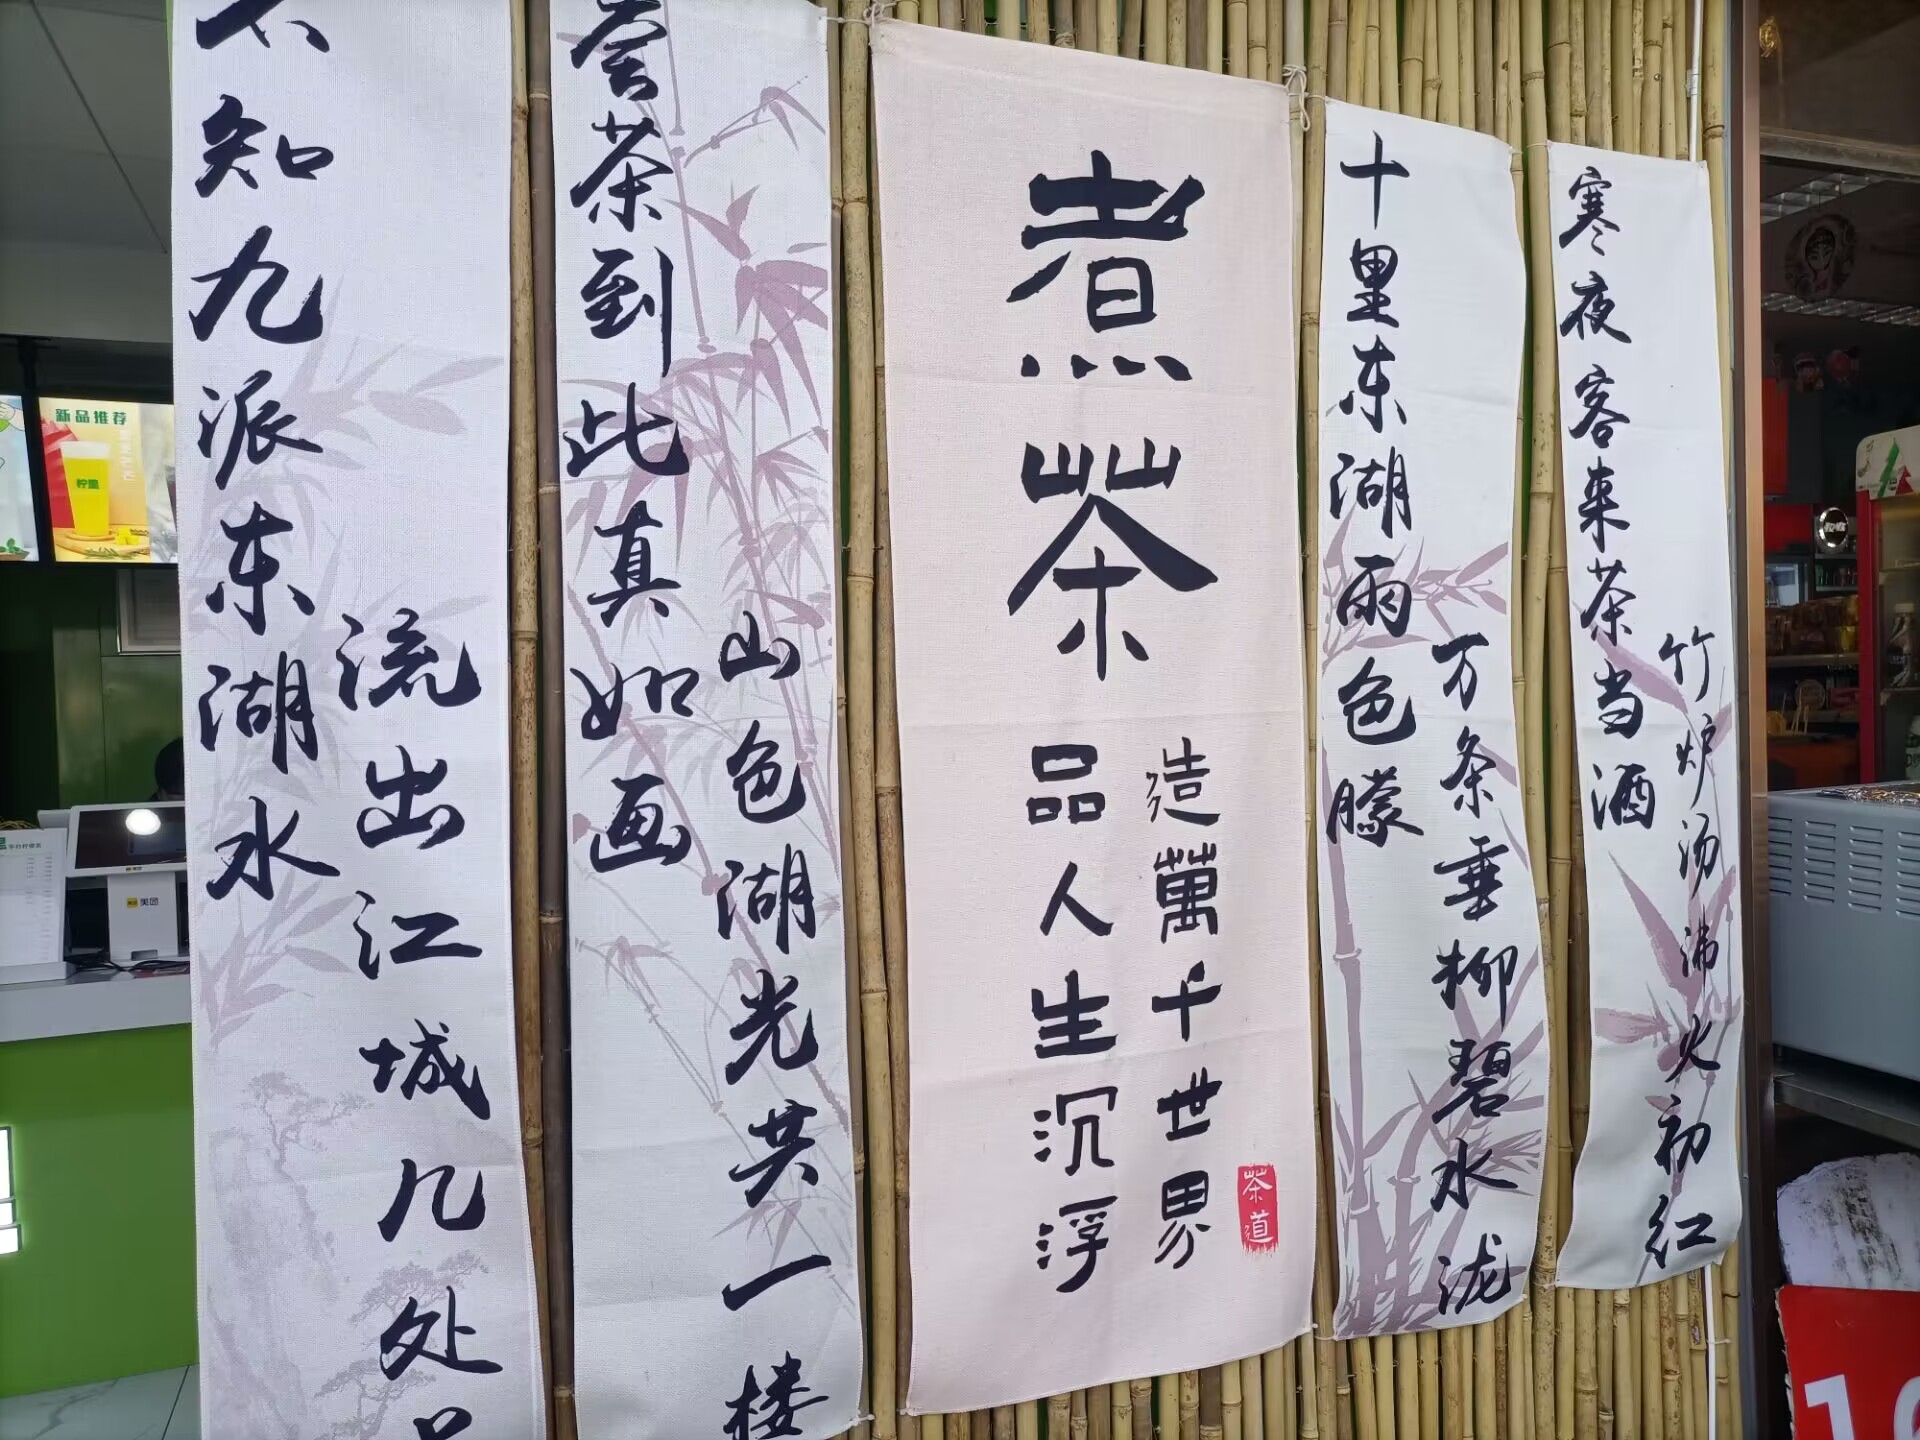 不知九派东湖水
流出江城几处
尝茶到此真如画
山色湖光共一楼
煮茶
品人生沉浮
造萬千世界
茶道
十里东湖雨色朦
万条垂柳碧水泷
寒夜客来茶当酒
竹炉汤沸火初红
新品推荐
美团